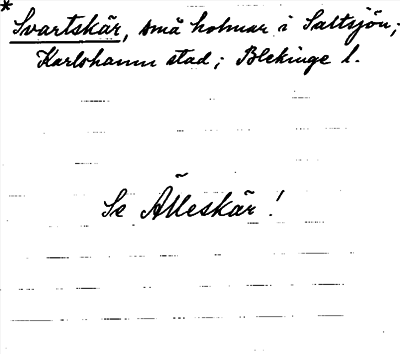 * Svartskär, små holmar i Saltsjön;
Karlshamn stad; Blekinge l.
Se Älleskär!